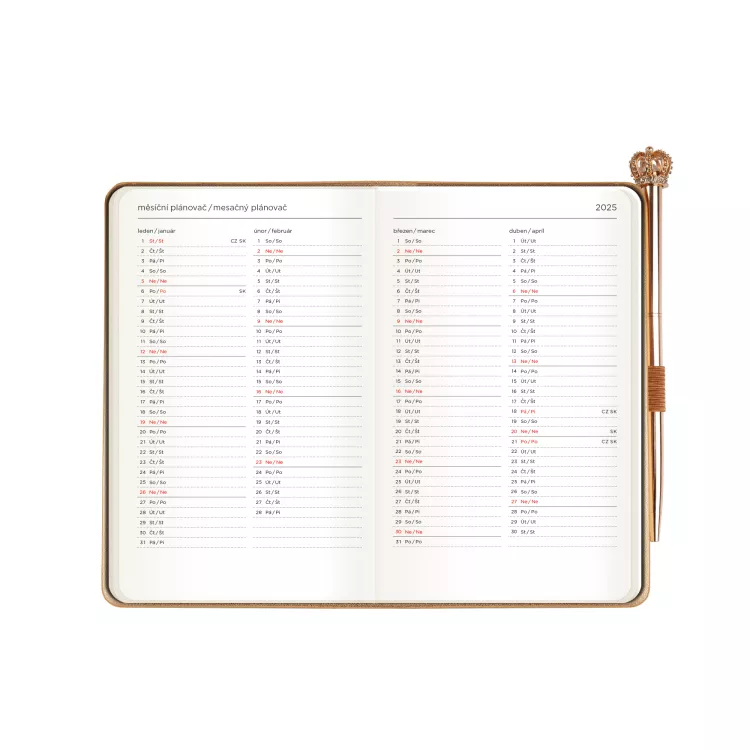 měsíční plánovač / mesačný plánovač
leden / január
1 St / St CZ SK
2 Čt / Št
3 Pá / Pi
4 So / So
5 Ne / Ne
6 Po / Po SK
7 Út / Ut
8 St / St
9 Čt / Št
10 Pá / Pi
11 So / So
12 Ne / Ne
13 Po / Po
14 Út / Ut
15 St / St
16 Čt / Št
17 Pá / Pi
18 So / So
19 Ne / Ne
20 Po / Po
21 Út / Ut
22 St / St
23 Čt / Št
24 Pá / Pi
25 So / So
26 Ne / Ne
27 Po / Po
28 Út / Ut
29 St / St
30 Čt / Št
31 Pá / Pi
únor / február
1 So / So
2 Ne / Ne
3 Po / Po
4 Út / Ut
5 St / St
6 Čt / Št
7 Pá / Pi
8 So / So
9 Ne / Ne
10 Po / Po
11 Út / Ut
12 St / St
13 Čt / Št
14 Pá / Pi
15 So / So
16 Ne / Ne
17 Po / Po
18 Út / Ut
19 St / St
20 Čt / Št
21 Pá / Pi
22 So / So
23 Ne / Ne
24 Po / Po
25 Út / Ut
26 St / St
27 Čt / Št
28 Pá / Pi
2025
březen / marec
1 So / So
2 Ne / Ne
3 Po / Po
4 Út / Ut
5 St / St
6 Čt / Št
7 Pá / Pi
8 So / So
9 Ne / Ne
10 Po / Po
11 Út / Ut
12 St / St
13 Čt / Št
14 Pá / Pi
15 So / So
16 Ne / Ne
17 Po / Po
18 Út / Ut
19 St / St
20 Čt / Št
21 Pá / Pi
22 So / So
23 Ne / Ne
24 Po / Po
25 Út / Ut
26 St / St
27 Čt / Št
28 Pá / Pi
29 So / So
30 Ne / Ne
31 Po / Po
duben / apríl
1 Út / Ut
2 St / St
3 Čt / Št
4 Pá / Pi
5 So / So
6 Ne / Ne
7 Po / Po
8 Út / Ut
9 St / St
10 Čt / Št
11 Pá / Pi
12 So / So
13 Ne / Ne
14 Po / Po
15 Út / Ut
16 St / St
17 Čt / Št
18 Pá / Pi CZ SK
19 So / So
20 Ne / Ne SK
21 Po / Po CZ SK
22 Út / Ut
23 St / St
24 Čt / Št
25 Pá / Pi
26 So / So
27 Ne / Ne
28 Po / Po
29 Út / Ut
30 St / St